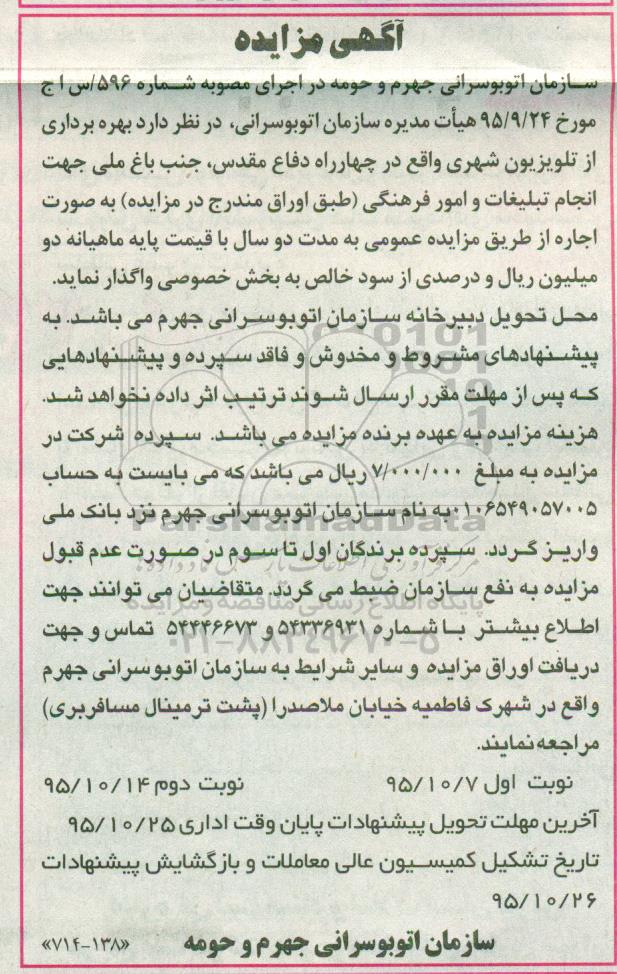 آگهی مزایده
سازمان اتوبوسرانی جهرم و حومه در اجرای مصوبه شماره ۵۹۶/س ا ج
مورخ ۹۵/۹/۲۴ هیأت مدیره سازمان اتوبوسرانی، در نظر دارد بهره برداری
از تلویزیون شهری واقع در چهارراه دفاع مقدس، جنب باغ ملی جهت
انجام تبلیغات و امور فرهنگی (طبق اوراق مندرج در مزایده) به صورت
اجاره از طریق مزایده عمومی به مدت دو سال با قیمت پایه ماهیانه دو
میلیون ریال و درصدی از سود خالص به بخش خصوصی واگذار نماید.
محل تحویل دبیرخانه سازمان اتوبوسرانی جهرم می باشد. به
پیشنهادهای مشروط و مخدوش و فاقد سپرده و پیشنهادهایی
که پس از مهلت مقرر ارسال شوند ترتیب اثر داده نخواهد شد.
هزینه مزایده به عهده برنده مزایده می باشد. سپرده شرکت در
مزایده به مبلغ ۷/۰۰۰/۰۰۰ ریال می باشد که می بایست به حساب
۰۱۰۶۵۴۹۰۵۷۰۰۵ به نام سازمان اتوبوسرانی جهرم نزد بانک ملی
واریز گردد. سپرده برندگان اول تا سوم در صورت عدم قبول
مزایده به نفع سازمان ضبط می گردد. متقاضیان می توانند جهت
اطلاع بیشتر با شماره ۵۴۳۳۶۹۳۱ و ۵۴۴۴۶۶۷۳ تماس و جهت
دریافت اوراق مزایده و سایر شرایط به سازمان اتوبوسرانی جهرم
واقع در شهرک فاطمیه خیابان ملاصدرا (پشت ترمینال مسافربری)
مراجعه نمایند.
نوبت اول ۹۵/۱۰/۷ نوبت دوم ۹۵/۱۰/۱۴
آخرین مهلت تحویل پیشنهادات پایان وقت اداری ۹۵/۱۰/۲۵
تاریخ تشکیل کمیسیون عالی معاملات و بازگشایش پیشنهادات
۹۵/۱۰/۲۶
سازمان اتوبوسرانی جهرم و حومه «۷۱۴-۱۳۸»
ParsNamadData
پایگاه اطلاع رسانی مناقصه و مزایده
۰۲۱-۸۸۳۴۹۶۷۰-۵